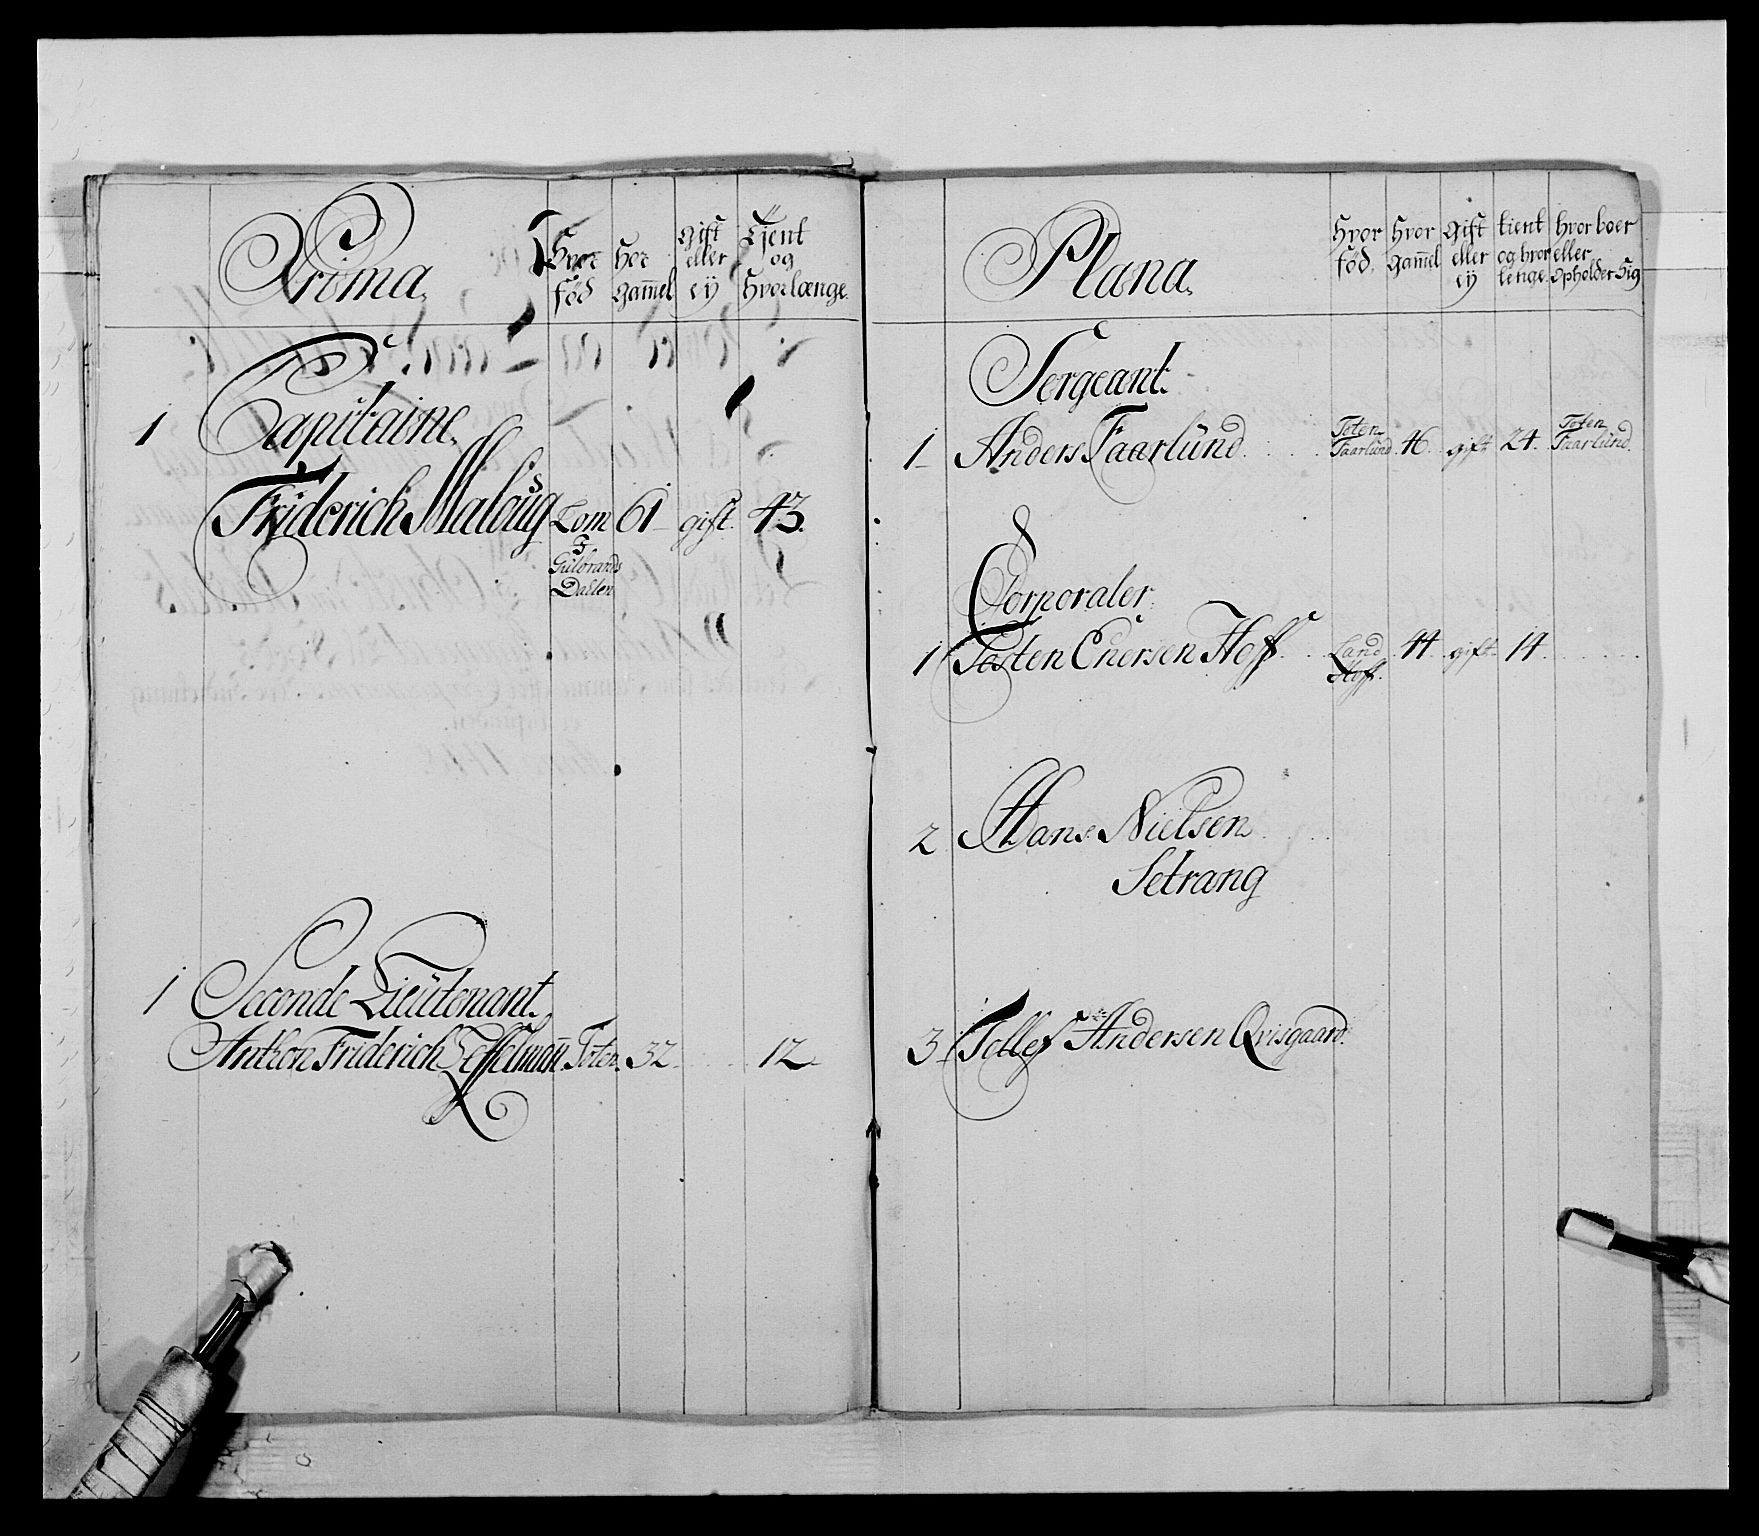 Prima.
Hvor
fød
Hor
gam̄el
Gift
eller
ey
Tjent
og
Hvorlænge.
1 Capitaine.
Friderich Maloug Lom 61 gift. 43.
I
Gulbrands
Dahlen
1 Seconde Lieutenant.
Anthon Friderich Zeffelman̄. Toten. 32. 12.
Plana.
Hvor
fød.
Hvor
gam̄el
Gift
eller
ey
tient
og hvor
lenge.
hvor boer
eller
opholder sig
Sergeant.
1 Anders Faarlund Toten Faarlund 46. gift 24. Toten Faarlund.
Corporaler.
1 Tosten Enersen Hoff. Land Hoff. 44. gift. 14.
2 Hans Nielsen
Setrang
3 Tollef Andersen Qvisgaard.